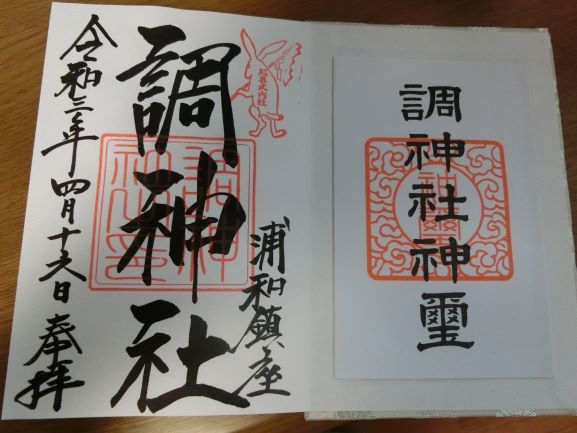 調神社神璽
延喜式内社
浦和鎮座
調神社
令和三年四月十六日奉拝